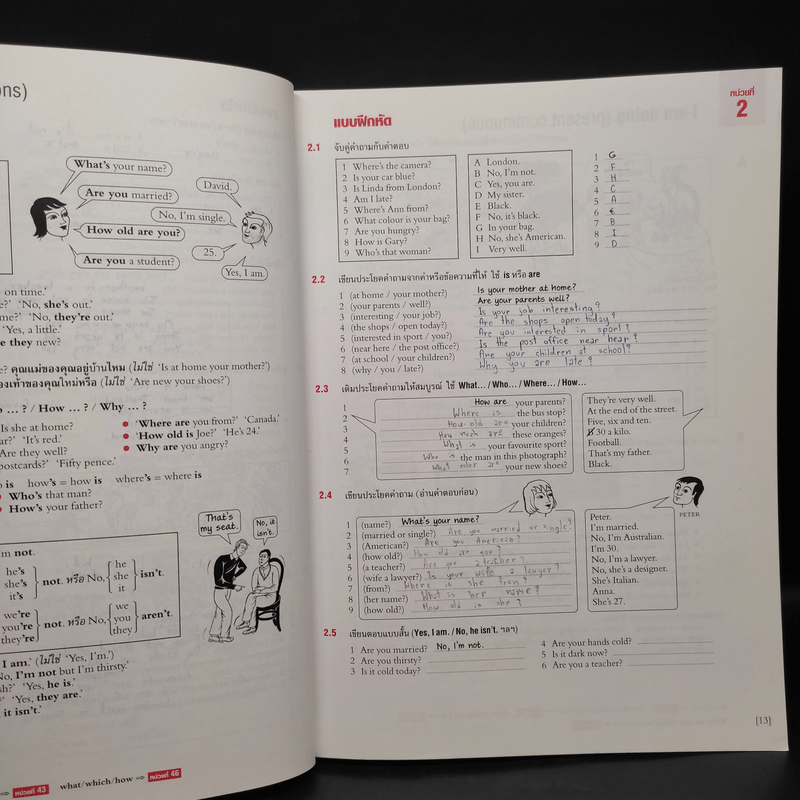 ons)
What's your name?
Are you married?
David.
No, I'm single.
How old are you?
25.
Are you a student?
Yes, I am.
on time.'
e?' 'No, she's out.'
me?' 'No, they're out.'
'Yes, a little.'
e they new?
e? คุณแม่ของคุณอยู่บ้านไหม (ไม่ใช่ 'Is at home your mother?')
องเท้าของคุณใหม่หรือ (ไม่ใช่ 'Are new your shoes?')
o … ? / How … ? / Why … ?
Is she at home?
ar?' 'It's red.'
Are they well?
postcards?' 'Fifty pence.'
'Where are you from?' 'Canada.'
'How old is Joe?' 'He's 24.'
Why are you angry?
o is how's = how is where's = where is
Who's that man?
How's your father?
That's my seat.
No, it isn't.
'm not.
he's
she's
it's
not. หรือ No,
he
she
it
isn't.
we're
you're
they're
not. หรือ No,
we
you
they
aren't.
I am.' (ไม่ใช่ 'Yes, I'm.')
No, I'm not but I'm thirsty.'
sh?' 'Yes, he is.'
?' 'Yes, they are.'
it isn't.'
⇒ หน่วยที่ 43 what/which/how ⇒ หน่วยที่ 46
หน่วยที่
2
แบบฝึกหัด
2.1 จับคู่คำถามกับคำตอบ
1 Where's the camera?
2 Is your car blue?
3 Is Linda from London?
4 Am I late?
5 Where's Ann from?
6 What colour is your bag?
7 Are you hungry?
8 How is Gary?
9 Who's that woman?
A London.
B No, I'm not.
C Yes, you are.
D My sister.
E Black.
F No, it's black.
G In your bag.
H No, she's American.
I Very well.
1 G
2 F
3 H
4 C
5 A
6 E
7 B
8 I
9 D
2.2 เขียนประโยคคำถามจากคำหรือข้อความที่ให้ ใช้ is หรือ are
1 (at home / your mother?) Is your mother at home?
2 (your parents / well?) Are your parents well?
3 (interesting / your job?) Is your job interesting?
4 (the shops / open today?) Are the shops open today?
5 (interested in sport / you?) Are you interested in sport?
6 (near here / the post office?) Is the post office near hear?
7 (at school / your children?) Are your children at school?
8 (why / you / late?) Why you are late?
2.3 เติมประโยคคำถามให้สมบูรณ์ ใช้ What… / Who… / Where… / How…
1 How are your parents?
2 Where is the bus stop?
3 How old are your children?
4 How much are these oranges?
5 What is your favourite sport?
6 Who is the man in this photograph?
7 What color are your new shoes?
They're very well.
At the end of the street.
Five, six and ten.
30 a kilo.
Football.
That's my father.
Black.
2.4 เขียนประโยคคำถาม (อ่านคำตอบก่อน)
PETER
1 (name?) What's your name?
2 (married or single?) Are you married or single?
3 (American?) Are you American?
4 (how old?) How old are you?
5 (a teacher?) Are you a teacher?
6 (wife a lawyer?) Is your wife a lawyer?
7 (from?) Where is she from?
8 (her name?) What is her name?
9 (how old?) How old is she?
Peter.
I'm married.
No, I'm Australian.
I'm 30.
No, I'm a lawyer.
No, she's a designer.
She's Italian.
Anna.
She's 27.
2.5 เขียนตอบแบบสั้น (Yes, I am. / No, he isn't. ฯลฯ)
1 Are you married? No, I'm not.
2 Are you thirsty?
3 Is it cold today?
4 Are your hands cold?
5 Is it dark now?
6 Are you a teacher?
[13]